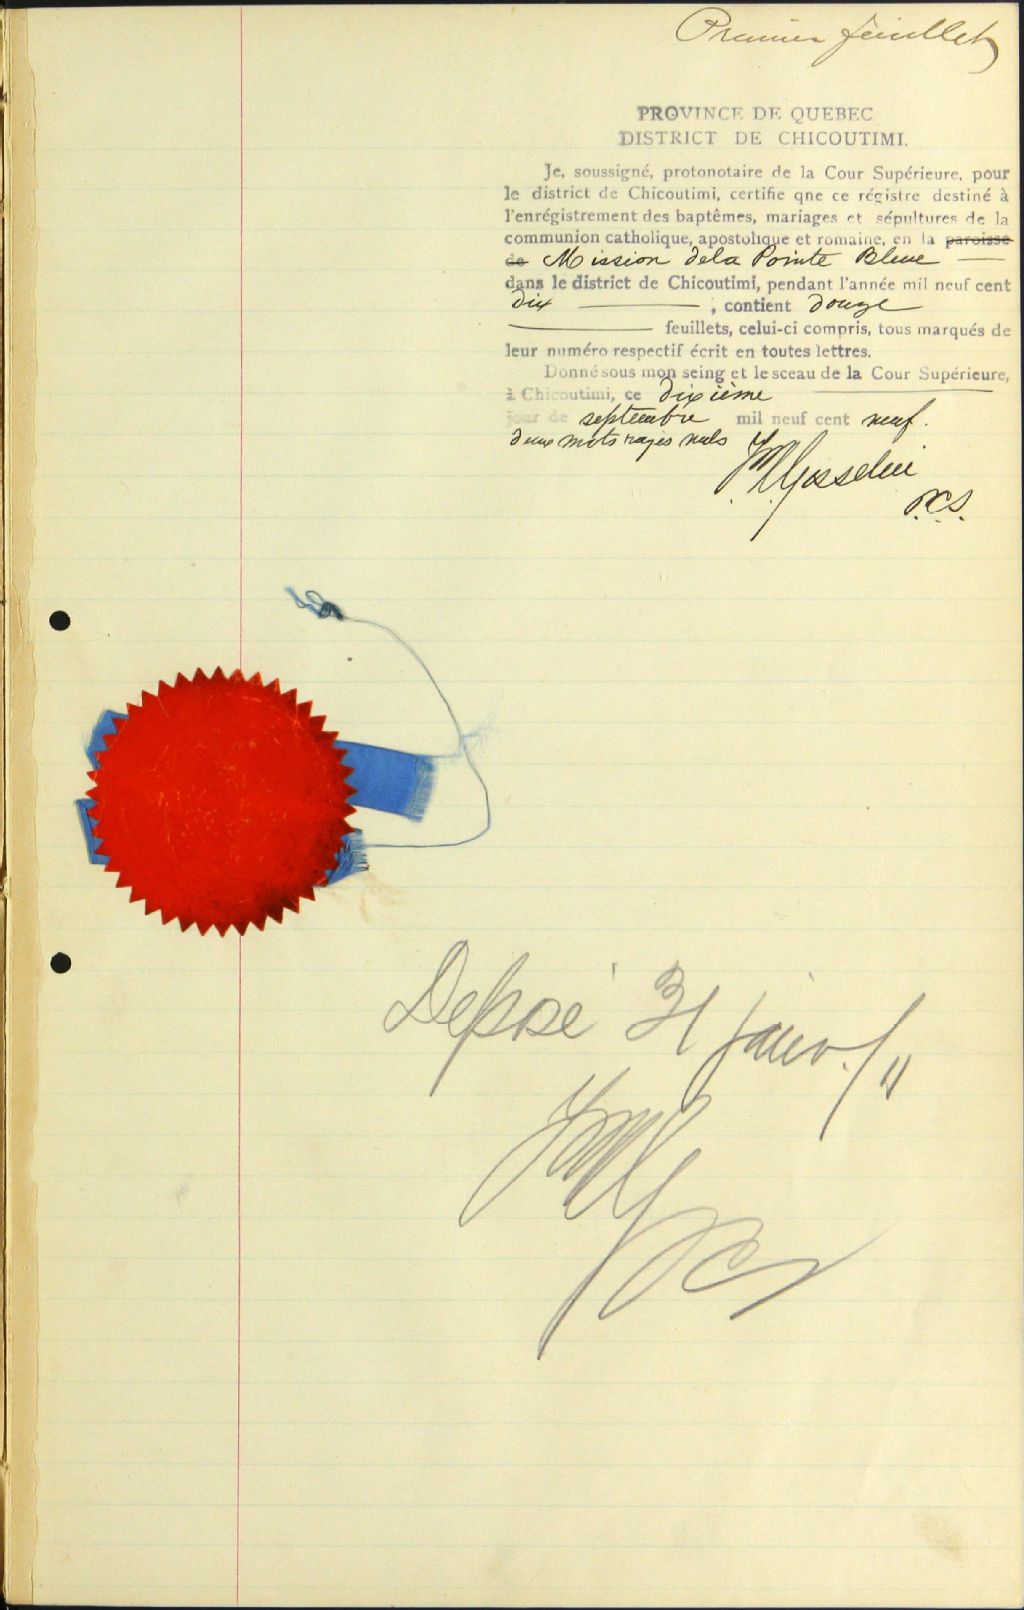 Premier feuillet
PROVINCE DE QUEBEC
DISTRICT DE CHICOUTIMI.
Je, soussigné, protonotaire de la Cour Supérieure, pour
le district de Chicoutimi, certifie qne ce régistre destiné à
l'enrégistrement des baptêmes, mariages et sépultures de la
communion catholique, apostolique et romaine, en la paroisse
de Mission de la Pointe Bleue
dans le district de Chicoutimi, pendant l'année mil neuf cent
dix ; contient douze
feuillets, celui-ci compris, tous marqués de
leur numéro respectif écrit en toutes lettres.
Donné sous mon seing et le sceau de la Cour Supérieure,
à Chicoutimi, ce dixième
jour de septembre mil neuf cent neuf.
deux mots rayés nuls
Gosselin
P.C.S.
Deposé 31 janv./11